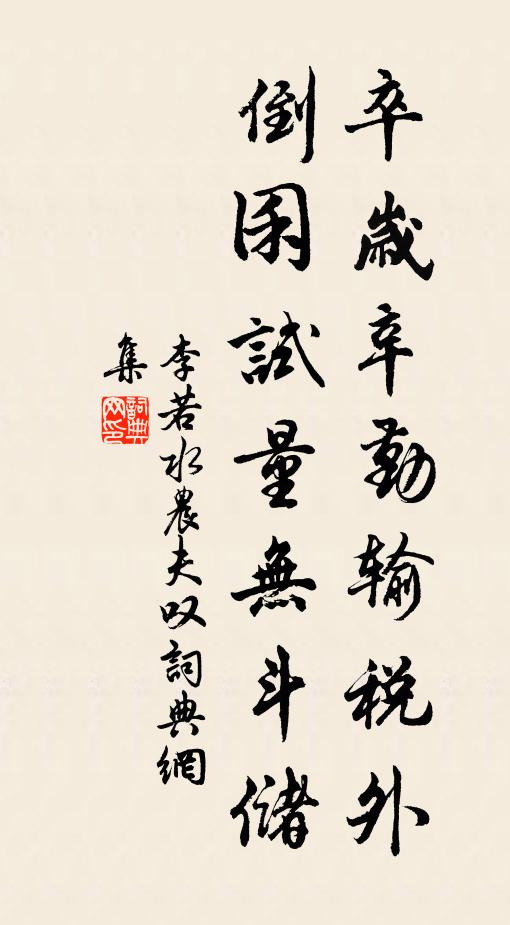 卒歲辛勤输税外
倒囷試量無斗儲
李若水農夫叹詞典網
集
詞典
网印